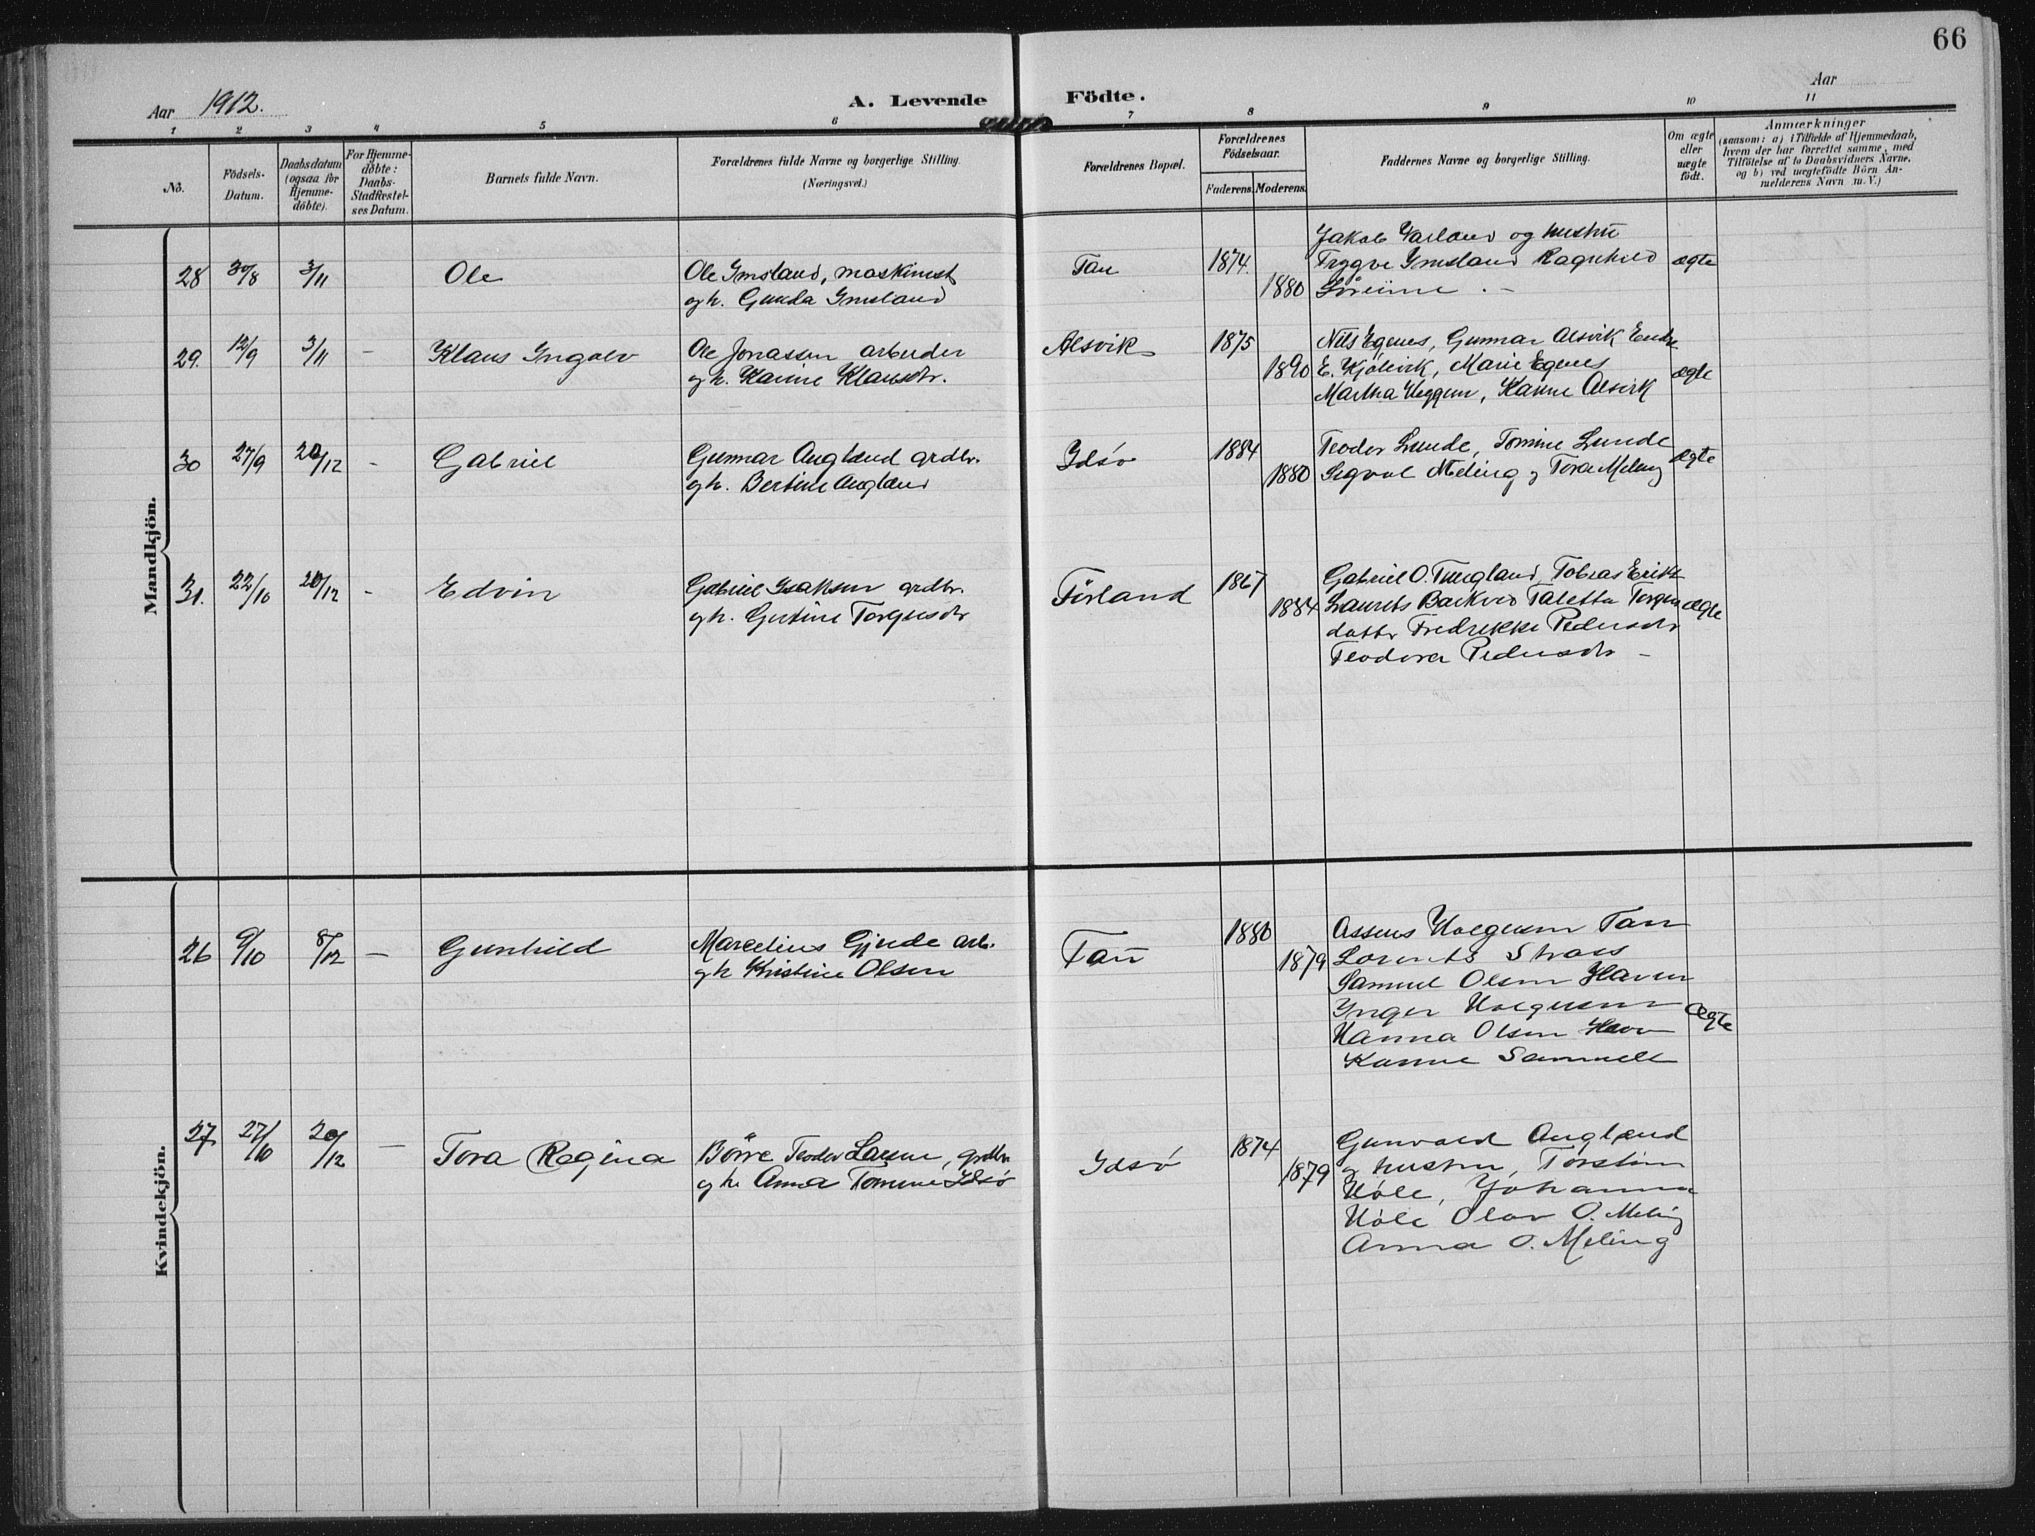 66
Aar 1912. A. Levende Födte. Aar
1 2 3 4 5 6 7 8 9 10 11
No.
Födsels-
Datum.
Daabsdatum
(ogsaa for
Hjemme-
döbte).
For Hjemme-
döbte:
Daabs-
Stadfæstel-
ses Datum.
Barnets fulde Navn.
Forældrenes fulde Navne og borgerlige Stilling.
(Næringsvei.)
Forældrenes Bopæl.
Forældrenes
Födselsaar.
Faderens. Moderens.
Faddernes Navne og borgerlige Stilling.
Om ægte
eller
uægte
födt.
Anmærkninger
(saasom: a) i Tilfælde af Hjemmedaab,
hvem der har forrettet samme, med
Tilföielse af to Daabsvidners Navne,
og b) ved uægtefödte Börn An-
melderens Navn m. V.)
Mandkjön.
28 30/8 3/11 Ole
Ole Imsland, maskinist
og h. Gunda Imsland
Tau 1874. 1880
Jakob Varland og hustru
Trygve Imsland Ragnhild
ægte
29. 12/9 3/11 - Klaus Ingolv
Ole Jonassen arbeider
og h. Karine Klausdtr.
Alsvik 1875 1890
Nils Egenes, Gunnar Alsvik Endre
E. Kjölevik, Marie Egenes
Martha Heggum, Karine Alsvik
ægte
30 27/9 20/12 - Gabriel
Gunnar Auglænd grdbr.
og h. Bertine Auglænd
Idsö 1884 1880
Teodor Lunde, Tomine Lunde
Sigval Meling og Tora Meling
ægte
31. 22/10 20/12 - Edvin
Gabriel Isaksen grdbr.
og h. Gurine Torgersdtr
Förland 1867 1884
Gabriel O. Tungland, Tobias Eriks
Laurits Barkved Taletta Torger
dattr Fredrikke Pedersdtr
Teodora Pedersdtr -
ægte
Kvindekjön.
26 9/10 8/12 - Gunhild
Marselius Gjerde arb.
og h Kristine Olsen
Tau 1880 1879
Assens Holgersen Tau
Lorents Straos
Samuel Olsen Haven
Inger Holgersen
Hanna Olsen Haven
Karine Samuels
ægte
27 27/10 20/12 - Tora Regina
Börre Teodor Larsen, grdbr
og h. Anna Tomine Idsö
Idsö 1874 1879
Gunvald Auglænd
og hustru, Torstein
Höle, Johanna
Höle Olav O. Meling
Anna O. Meling